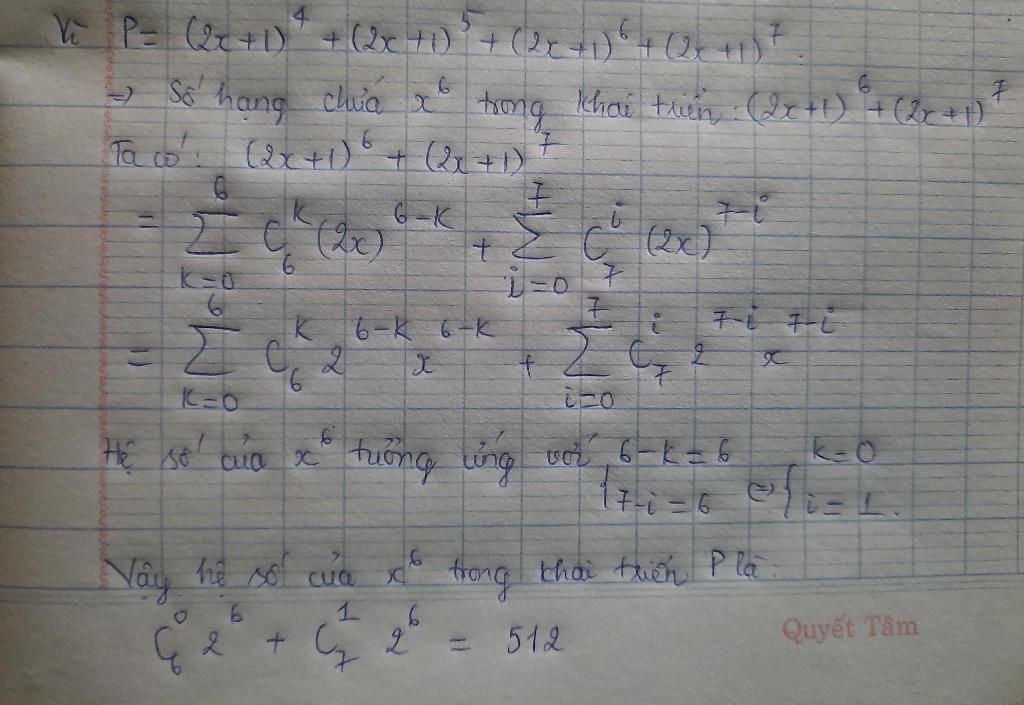 Vì P = (2x+1)^4 + (2x+1)^5 + (2x+1)^6 + (2x+1)^7.
⇒ Số hạng chứa x^6 trong khai triển (2x+1)^6 + (2x+1)^7
Ta có: (2x+1)^6 + (2x+1)^7
= \sum_{k=0}^{6} C_6^k (2x)^{6-k} + \sum_{i=0}^{7} C_7^i (2x)^{7-i}
= \sum_{k=0}^{6} C_6^k 2^{6-k} x^{6-k} + \sum_{i=0}^{7} C_7^i 2^{7-i} x^{7-i}
Hệ số của x^6 tưởng ứng với { 6-k=6 k=0
7-i=6 ⇔ { i=1.
Vậy hệ số của x^6 trong khai triển P là:
C_6^0 2^6 + C_7^1 2^6 = 512
Quyết Tâm